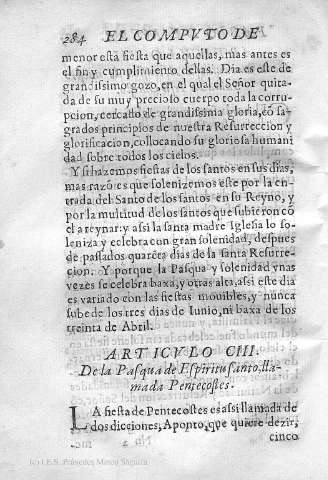 284 EL COMPVTO DE
menor esta fiesta que aquellas, mas antes es
el fin y cumplimiento dellas. Dia es este de
grandissimo gozo, en el qual el Señor quita-
da de su muy precioso cuerpo toda la corru-
pcion, cercallo de grandissima gloria, cõ sa-
grados principios de nuestra Resurreccion y
glorificacion, collocando su gloriosa humani
dad sobre todos los cielos.
Y si hazemos fiestas de los santos en sus dias,
mas razõ es que solenizemos este por la en-
trada del Santo de los santos en su Reyno, y
por la multitud de los santos que subieron cõ
el a reynar: y assi la santa madre Iglesia lo so-
leniza y celebra con gran solenidad, despues
de passados quarẽta dias de la santa Resurre-
cion. Y porque la Pasqua y solenidad vnas
vezes se celebra baxa, y otras alta, assi este dia
es variado con las fiestas mouibles, y nunca
sube de los tres dias de Iunio, ni baxa de los
treinta de Abril.
ARTICVLO CIII.
De la Pasqua de Espiritu santo, lla-
mada Pentecostes.
LA fiesta de Pentecostes es assi llamada de
dos dicciones, A ponto, que quiere dezir,
cinco
(c) I.E.S. Práxedes Mateo Sagasta